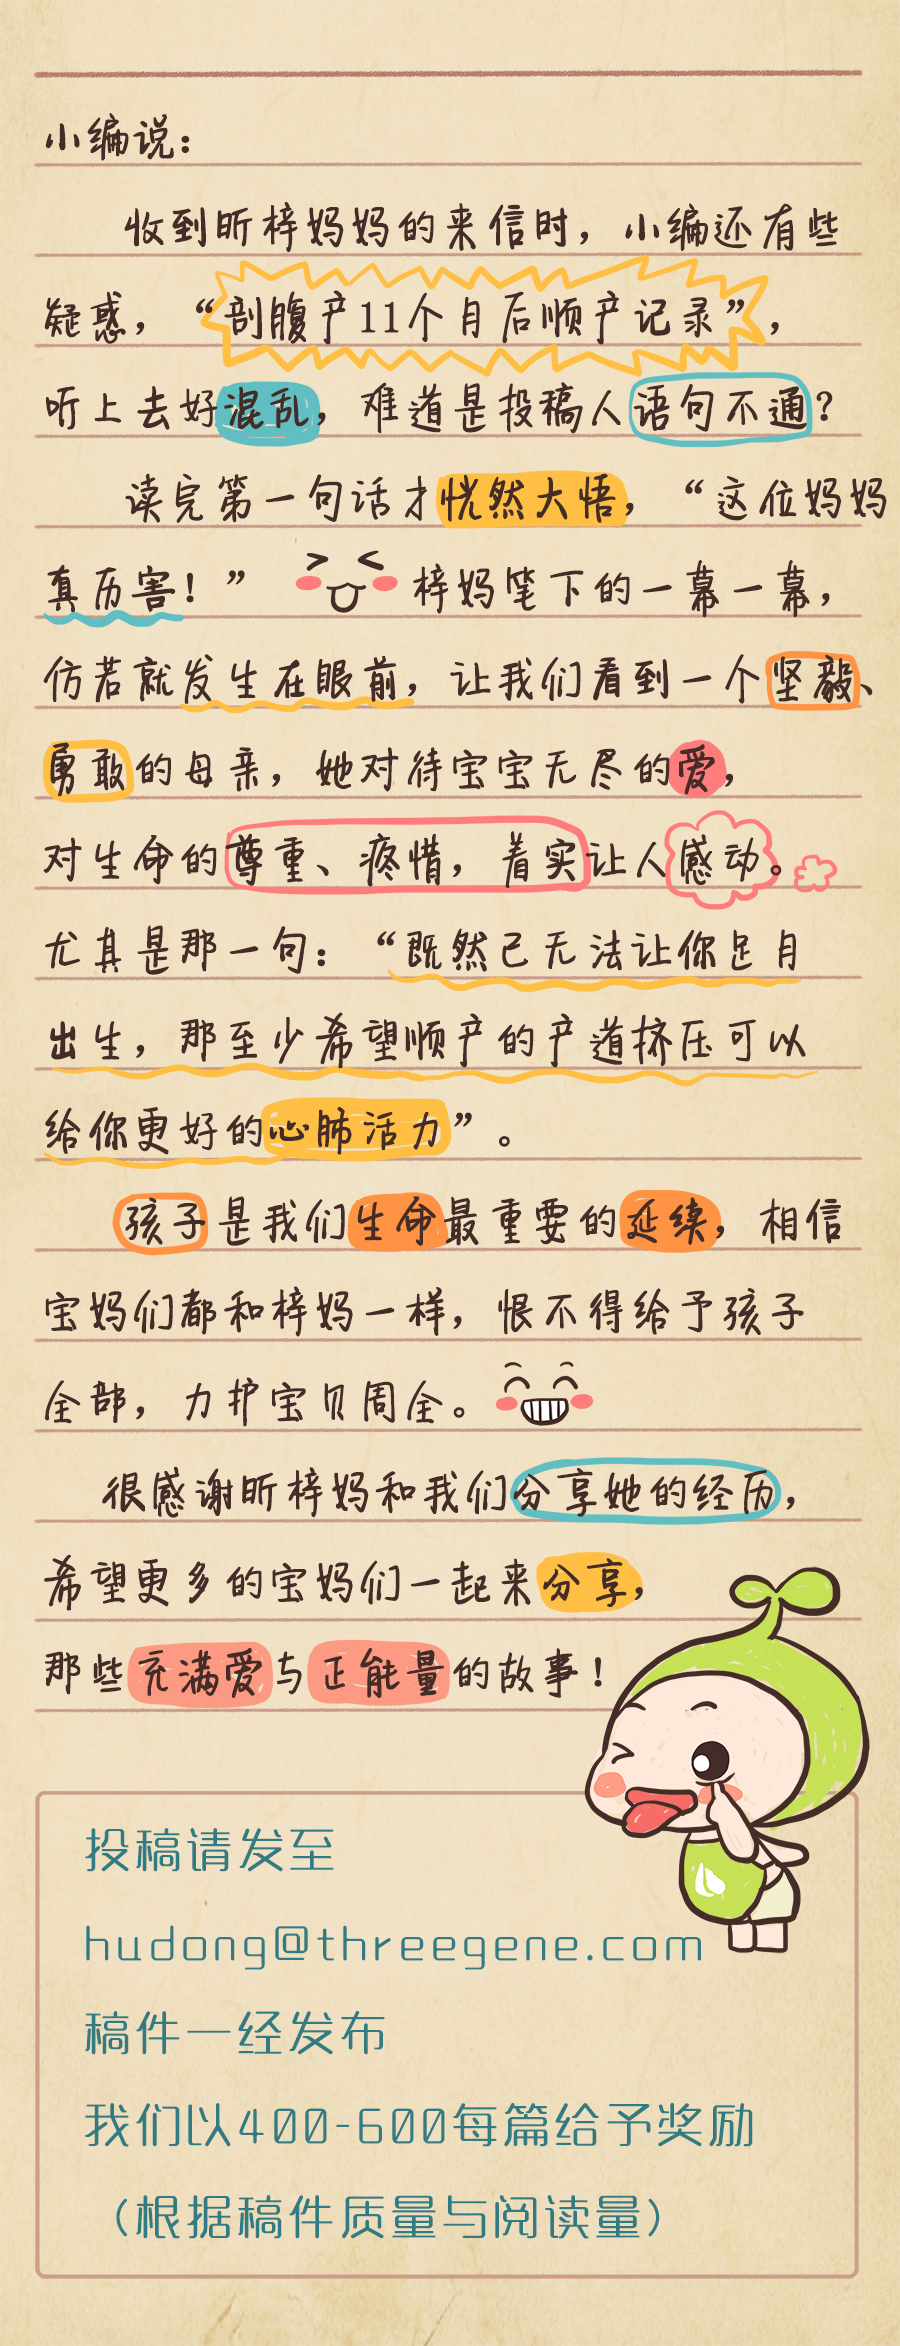 小编说：
收到昕梓妈妈的来信时，小编还有些
疑惑，“剖腹产11个月后顺产记录”，
听上去好混乱，难道是投稿人语句不通？
读完第一句话才恍然大悟，“这位妈妈
真厉害！” 梓妈笔下的一幕一幕，
仿若就发生在眼前，让我们看到一个坚毅、
勇敢的母亲，她对待宝宝无尽的爱，
对生命的尊重、疼惜，着实让人感动。
尤其是那一句：“既然已无法让你足月
出生，那至少希望顺产的产道挤压可以
给你更好的心肺活力”。
孩子是我们生命最重要的延续，相信
宝妈们都和梓妈一样，恨不得给予孩子
全部，力护宝贝周全。
很感谢昕梓妈和我们分享她的经历，
希望更多的宝妈们一起来分享，
那些充满爱与正能量的故事！
投稿请发至
hudong@threegene.com
稿件一经发布
我们以400-600每篇给予奖励
（根据稿件质量与阅读量）